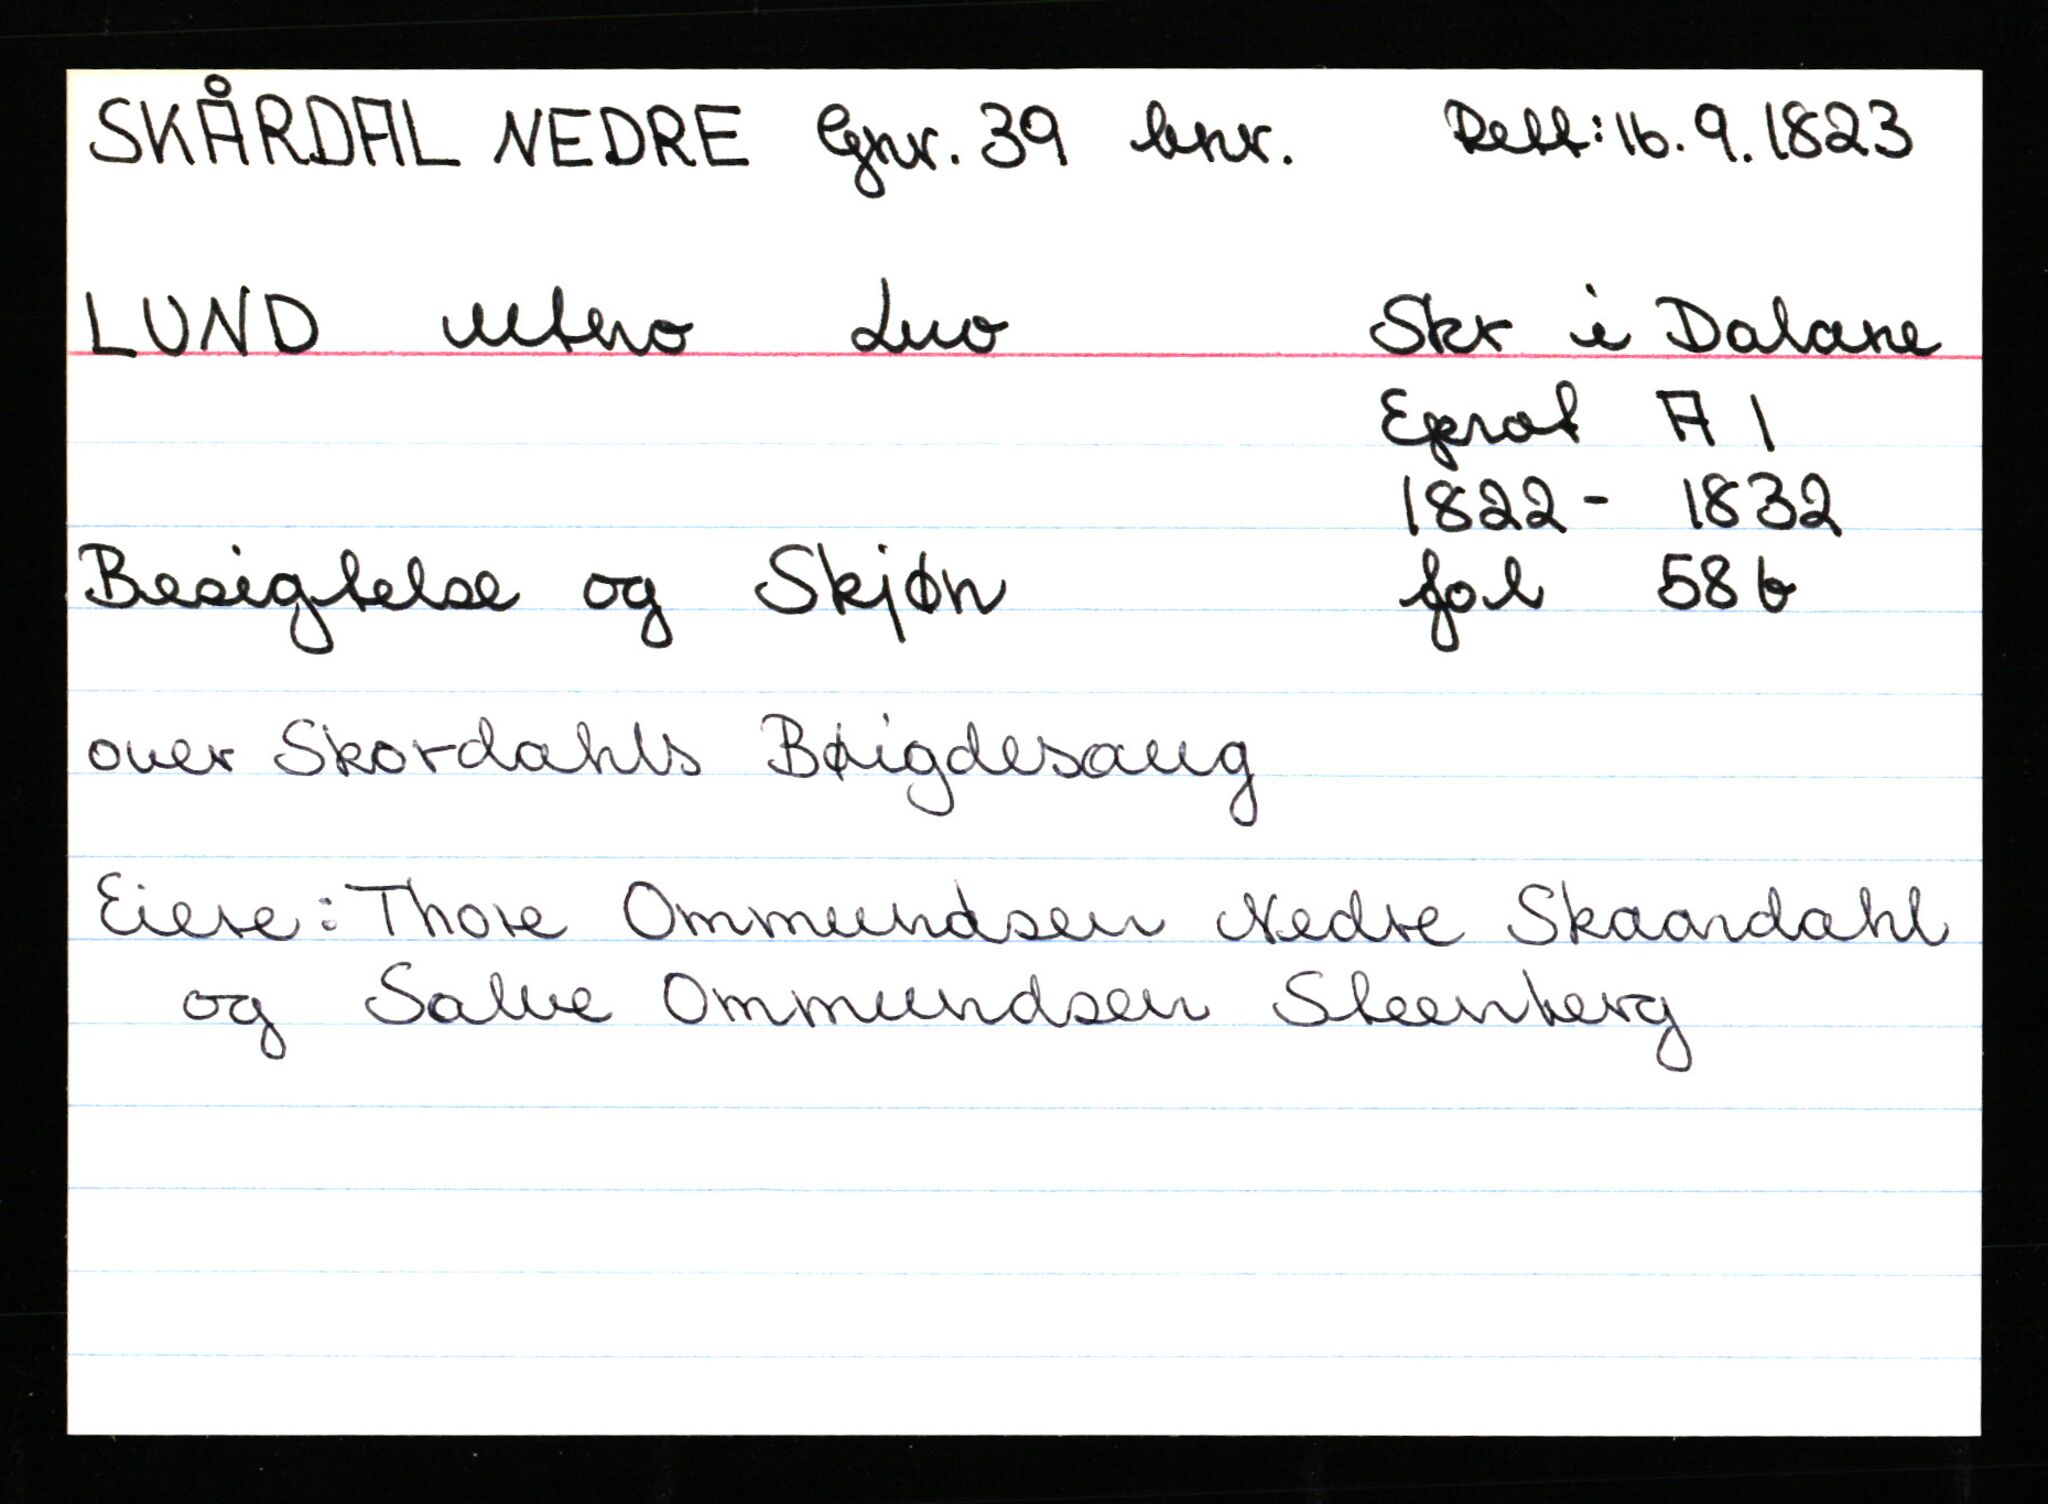 SKÅRDAL NEDRE Gnr. 39 bnr. Rett: 16.9.1823
LUND Mtno Lno Skr i Dalane
Eprot A 1
1822 - 1832
Besigtelse og Skjøn fol 58b
over Skordahls Bøigdesaug
Eiere: Thore Ommundsen Nedre Skaardahl
og Salve Ommundsen Steenberg